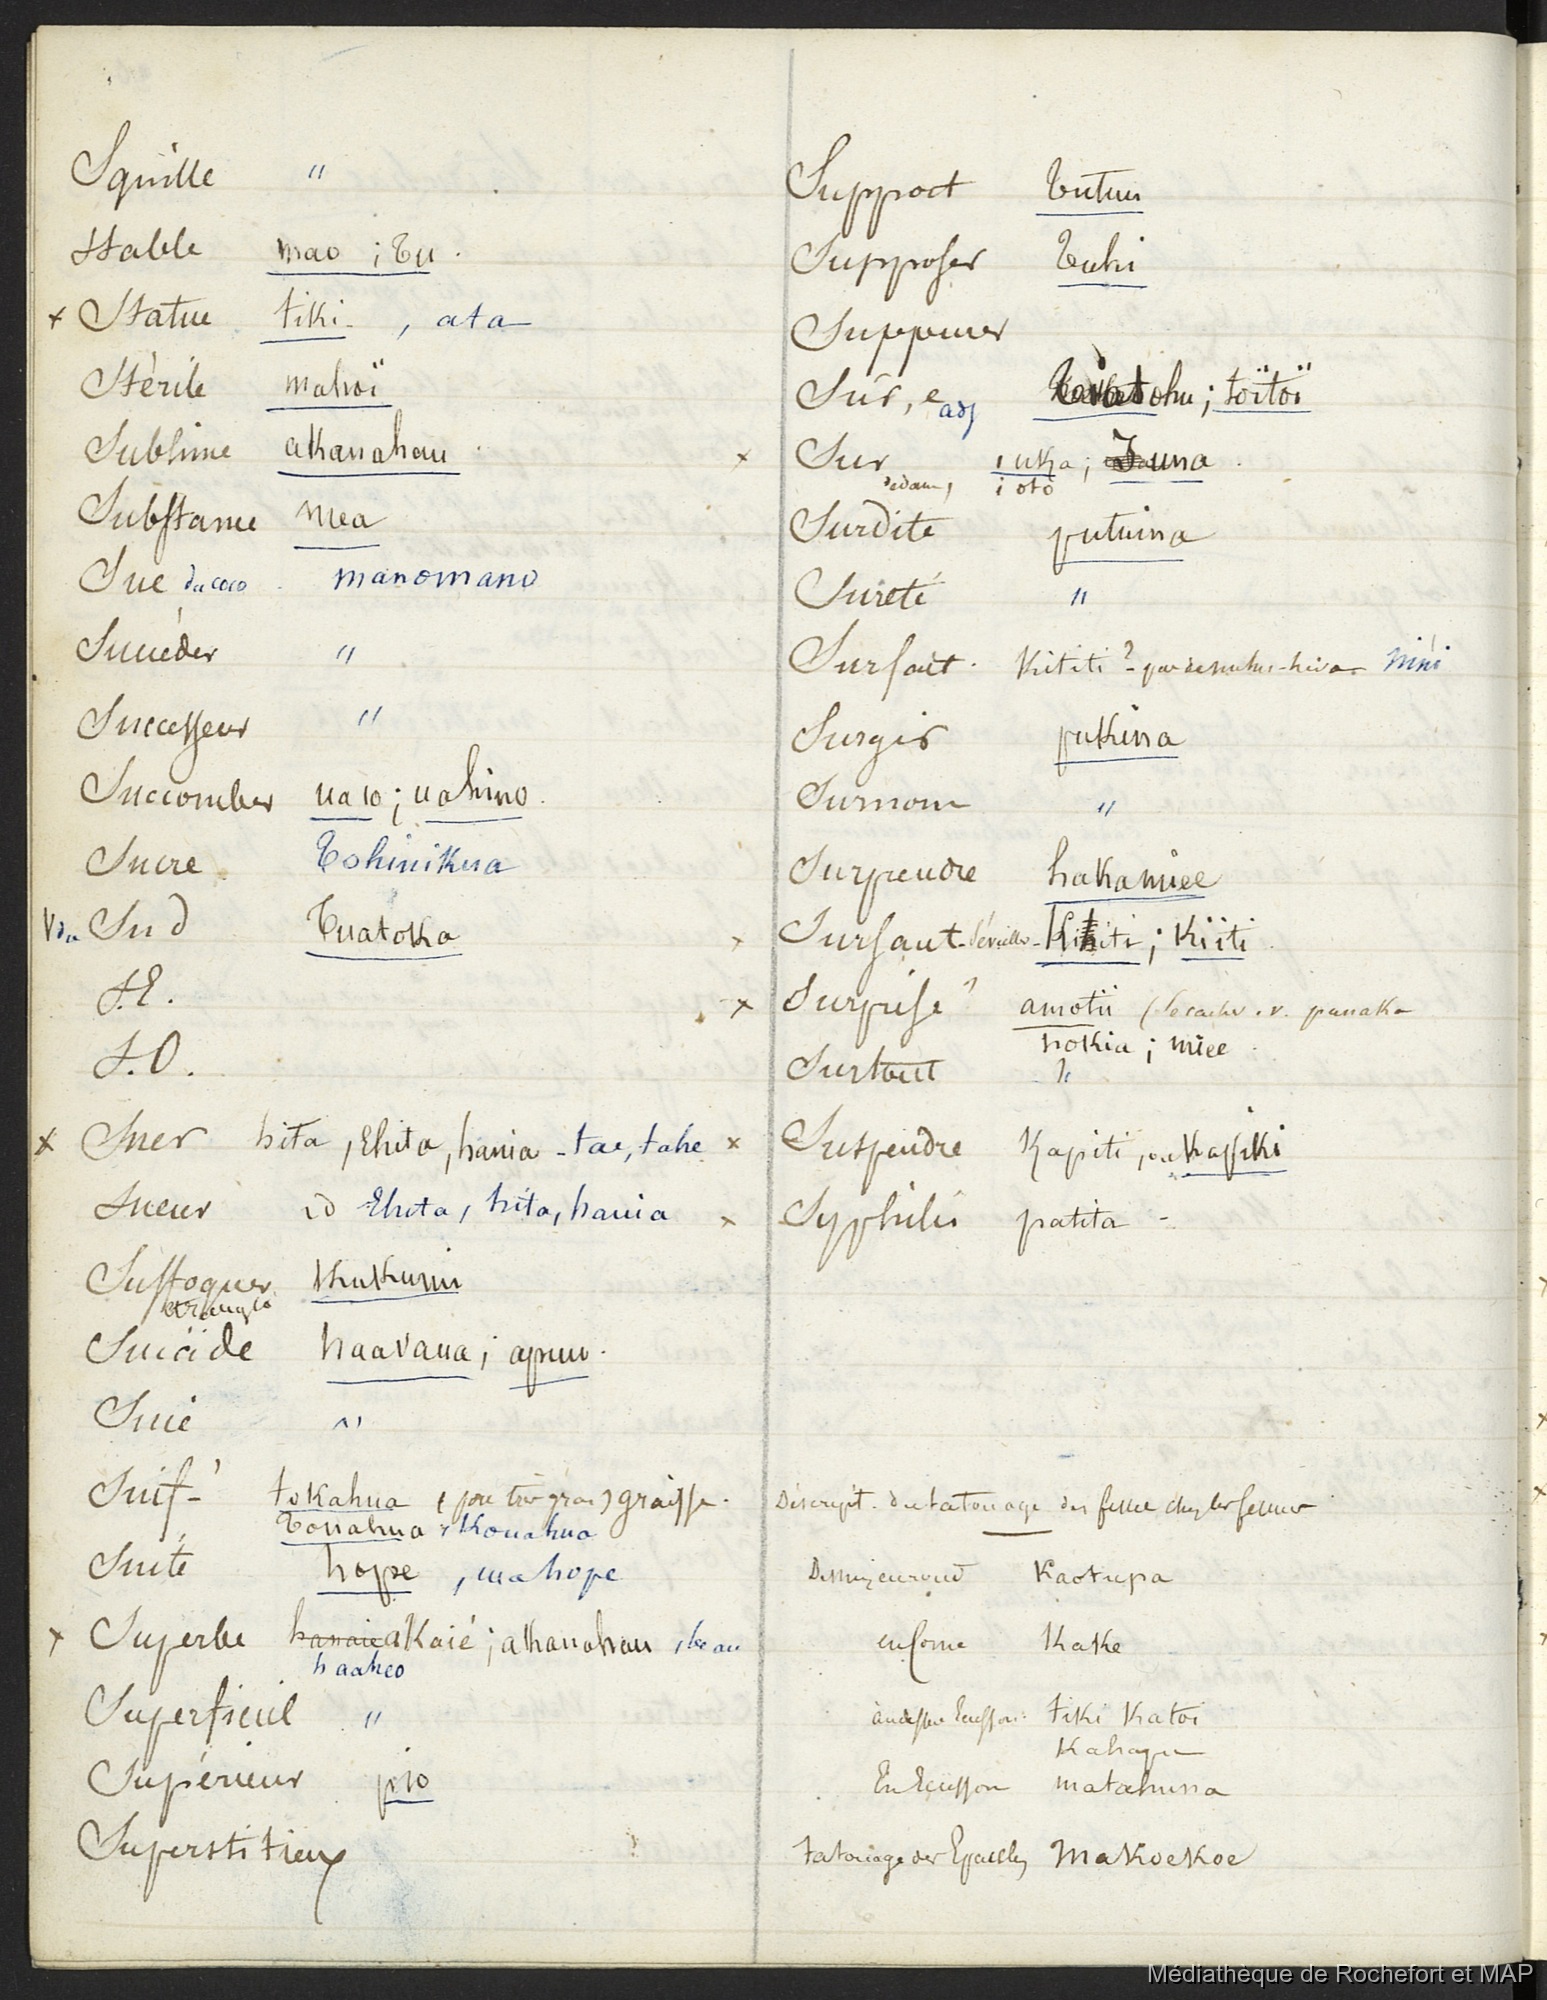 Squille "
Stable mao ; Tu .
x Statue tiki - , ata
Stérile mahoï
Sublime akanahau
Substance mea
Suc du coco . manomano
Succéder "
Successeur "
Succomber ua io ; uahino .
Sucre Tohinikua
V du Sud Tuatoka
S.E.
S.O.
x Suer hita , Ehita , hania - tae , tahe
Sueur id Ehita , hita , hania
Suffoquer Kukumi
étrangler
Suicide haavaua ; apuu .
Suie "
Suif - tokahua ( graisse .
Touahua , Kouahua
Suite hope , ma hope
x Superbe hanaie akaié ; akanahau , beau
haaheo
Superficiel "
Supérieur pio
Superstitieux
Support Tutuu
Supposer Tuhi
Supprimer
Sûr, e adj ohu ; toïtoï
x Sur i uka ; I una .
dedans, i oto
Surdité putuina
Sureté "
Surfait . Kititi ? - nini
Surgir pukina
Surnom "
Surprendre hakamiee
x Sursaut - Kititi ; Kiiti .
x Surprise ? amotii ( Se cacher . v. panaka
hokia ; miee .
Surtout "
x Suspendre Kapiti , ou Kapiki
x Syphilis patita -
Descript. du tatouage des
Demi en rond Kaotupa
en forme Kake
au dessus Ecusson : tiki Katoi
Kahapu
En Ecusson matahuna
Tatouage des Epaules Makoekoe
Médiathèque de Rochefort et MAP